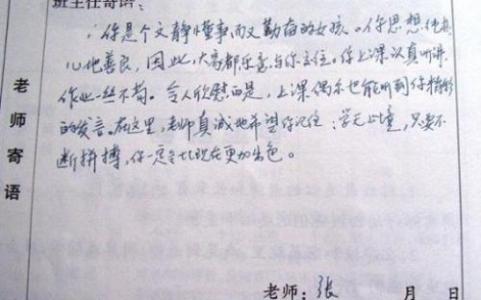 班主任寄语：
你是个文静懂事而又勤奋的女孩。你思想
心地善良，因此，大家都乐意与你交往。你上课认真听讲
作业一丝不苟。令人欣慰的是，上课偶尔也能听到你精彩
的发言。在这里，老师真诚地希望你记住：学无止境，只要不
断拼搏，你一定会比现在更加出色。
老师寄语
老师：张 月 日